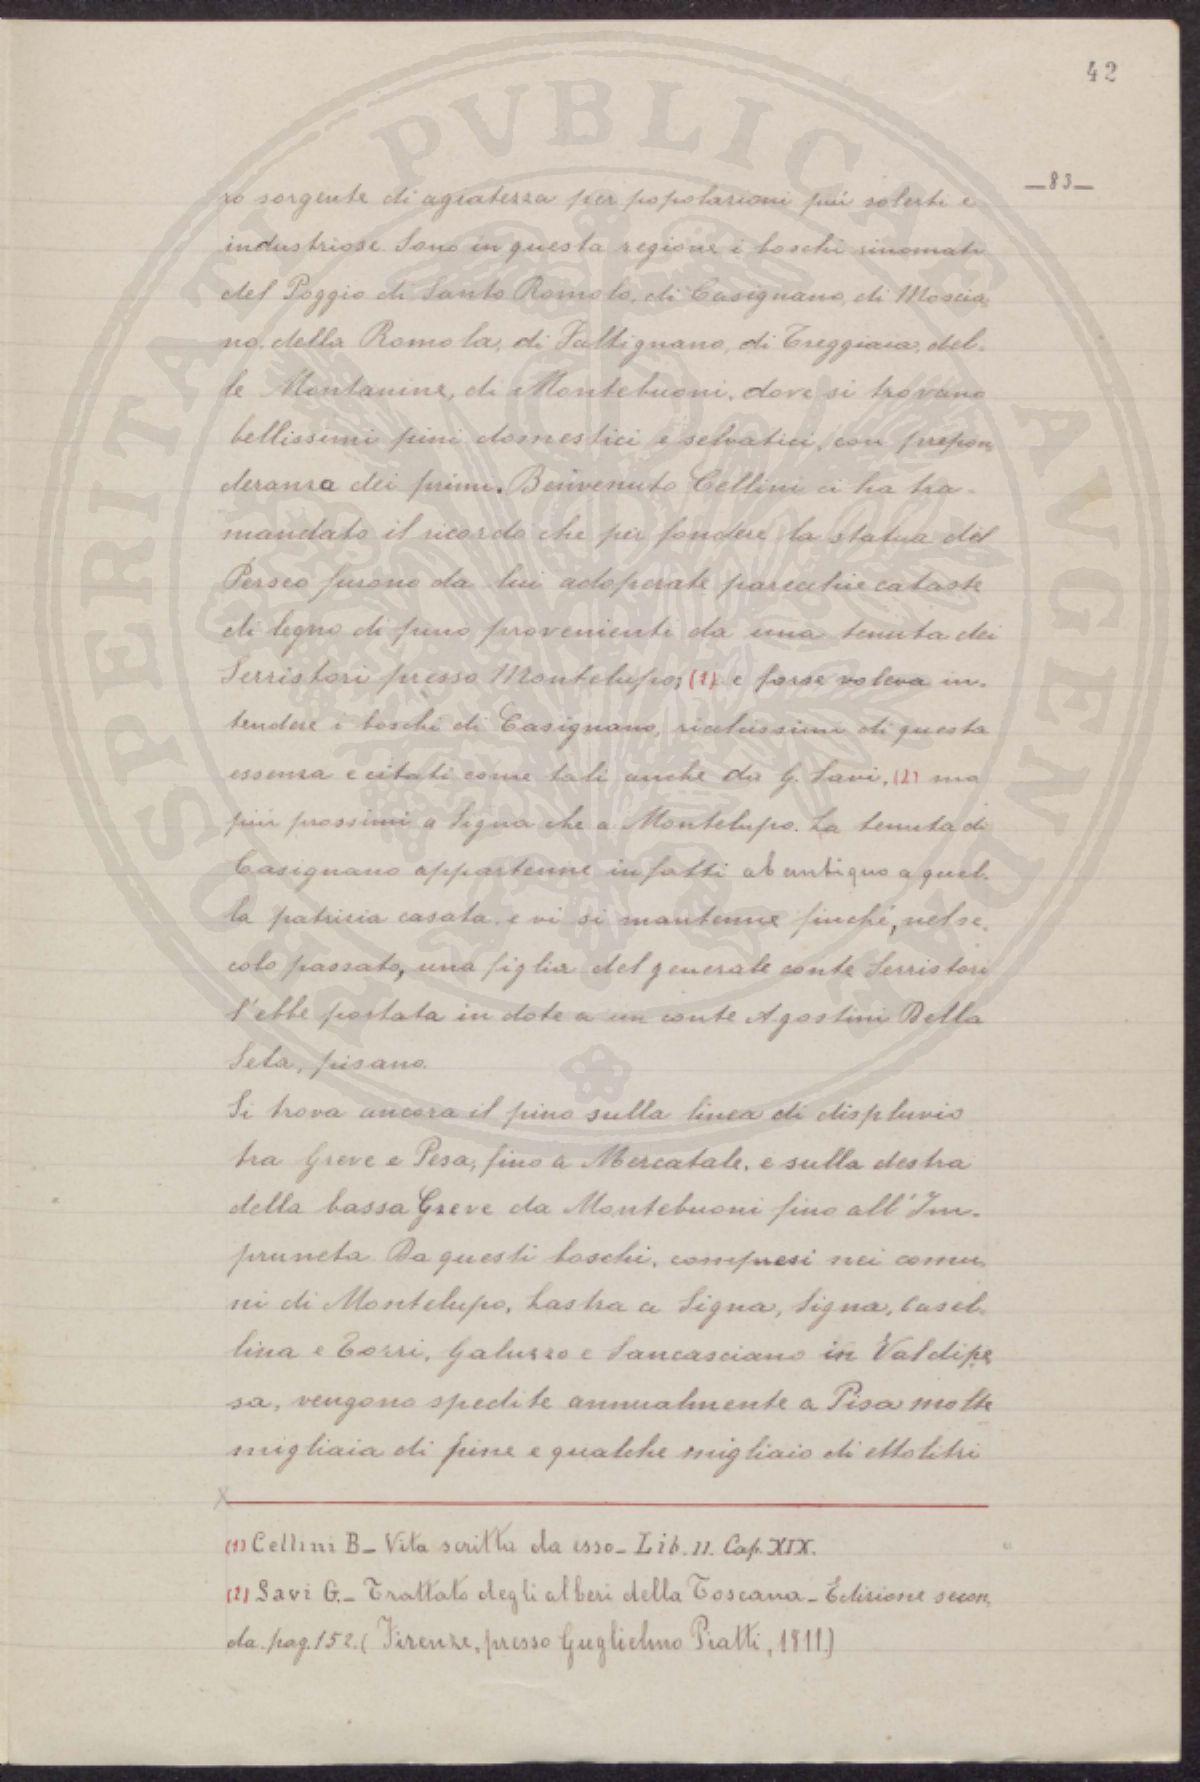 42
—83—
ro sorgente di agiatezza per popolazioni più solerti e
industriose. Sono in questa regione i boschi rinomati
del Poggio di Santo Romolo, di Casignano, di Moscia-
no, della Romola, di Faltignano, di Treggiaia, del-
le Montanine, di Montebuoni, dove si trovano
bellissimi pini domestici e selvatici, con prepon-
deranza dei primi. Benvenuto Cellini ci ha tra-
mandato il ricordo che per fondere la statua del
Perseo furono da lui adoperate parecchie cataste
di legno di pino provenienti da una tenuta dei
Serristori presso Montelupo; (1) e forse voleva in-
tendere i boschi di Casignano, ricchissimi di questa
essenza e citati come tali anche da G. Savi, (2) ma
più prossimi a Signa che a Montelupo. La tenuta di
Casignano appartenne infatti ab antiquo a quel-
la patrizia casata e vi si mantenne finché, nel se-
colo passato, una figlia del generale conte Serristori
l'ebbe portata in dote a un conte Agostini Della
Seta, pisano.
Si trova ancora il pino sulla linea di displuvio
tra Greve e Pesa, fino a Mercatale, e sulla destra
della bassa Greve da Montebuoni fino all'Im-
pruneta. Da questi boschi, compresi nei comu-
ni di Montelupo, Lastra a Signa, Signa, Casel-
lina e Torri, Galuzzo e Sancasciano in Valdipe
sa, vengono spedite annualmente a Pisa molte
migliaia di pine e qualche migliaio di ettolitri
(1) Cellini B_ Vita scritta da esso_ Lib. II. Cap. XIX.
(2) Savi G._ Trattato degli alberi della Toscana_ Edizione secon-
da. pag. 152. (Firenze, presso Guglielmo Piatti, 1811.)
PROSPERITATI PVBLICAE AVGENDAE